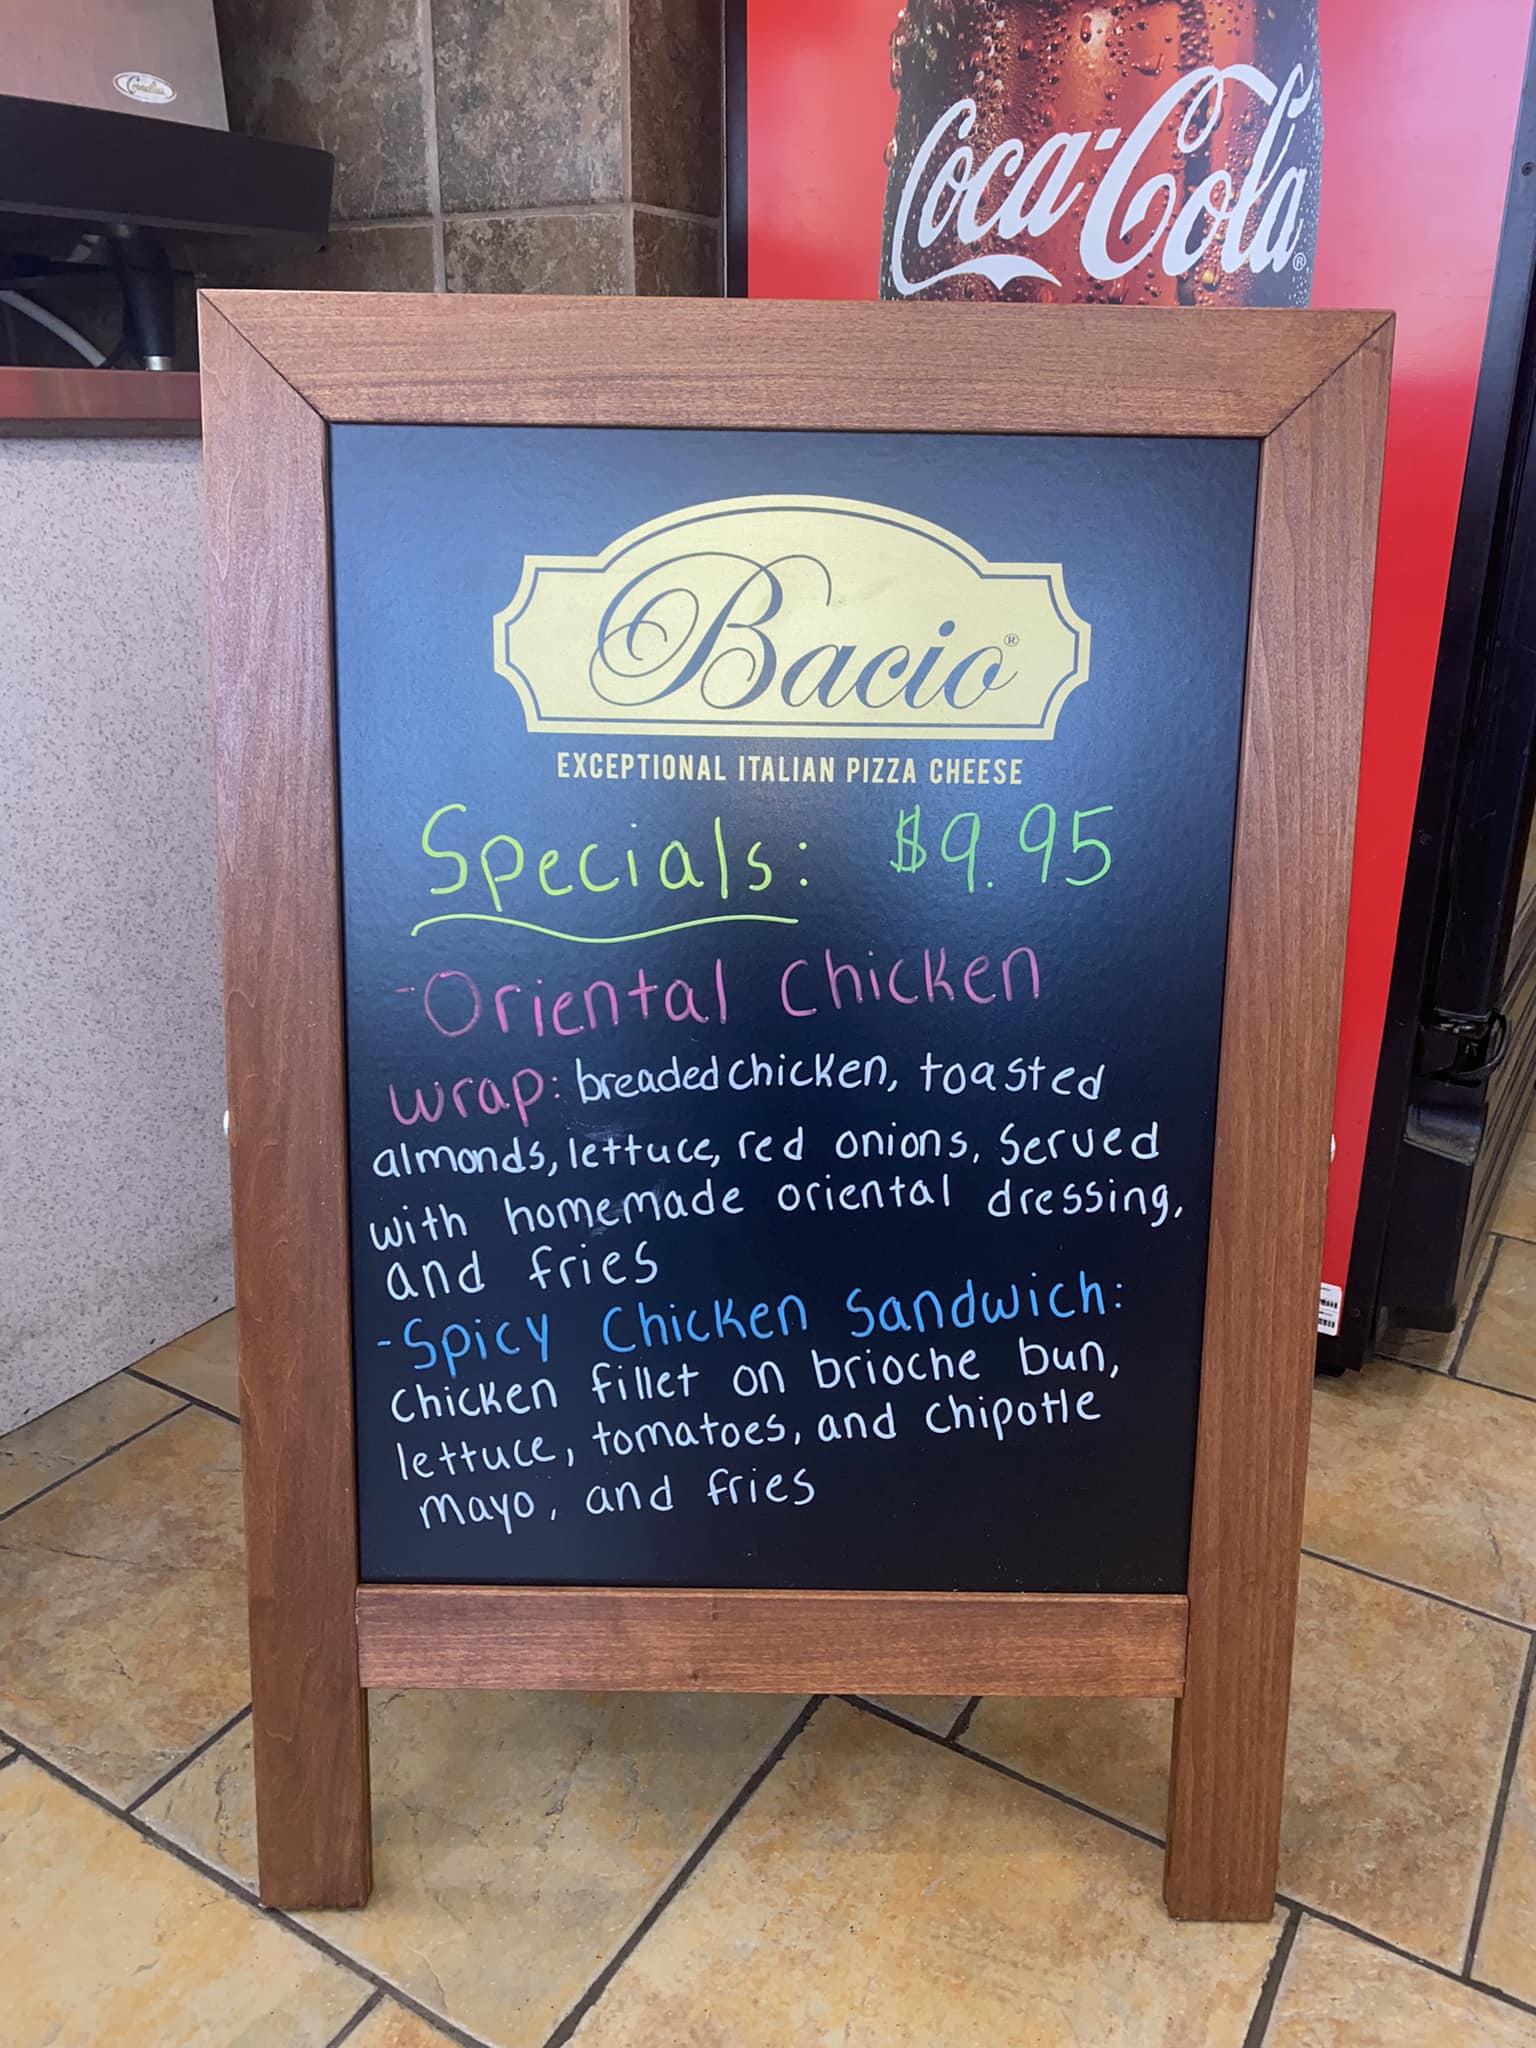 Cornelius
Coca-Cola®
Bacio®
EXCEPTIONAL ITALIAN PIZZA CHEESE
Specials: $9.95
-Oriental Chicken
wrap: breaded chicken, toasted
almonds, lettuce, red onions, served
with homemade oriental dressing,
and fries
-Spicy Chicken Sandwich:
chicken fillet on brioche bun,
lettuce, tomatoes, and chipotle
mayo, and fries